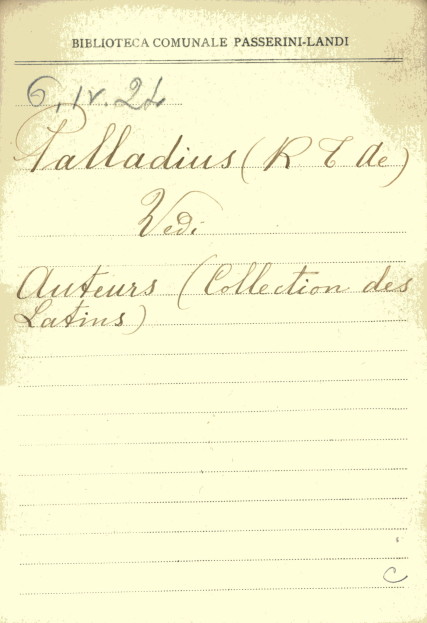 BIBLIOTECA COMUNALE PASSERINI-LANDI
6, IV. 21
Palladius (R T de)
Vedi
Auteurs (Collection des
Latins)
C